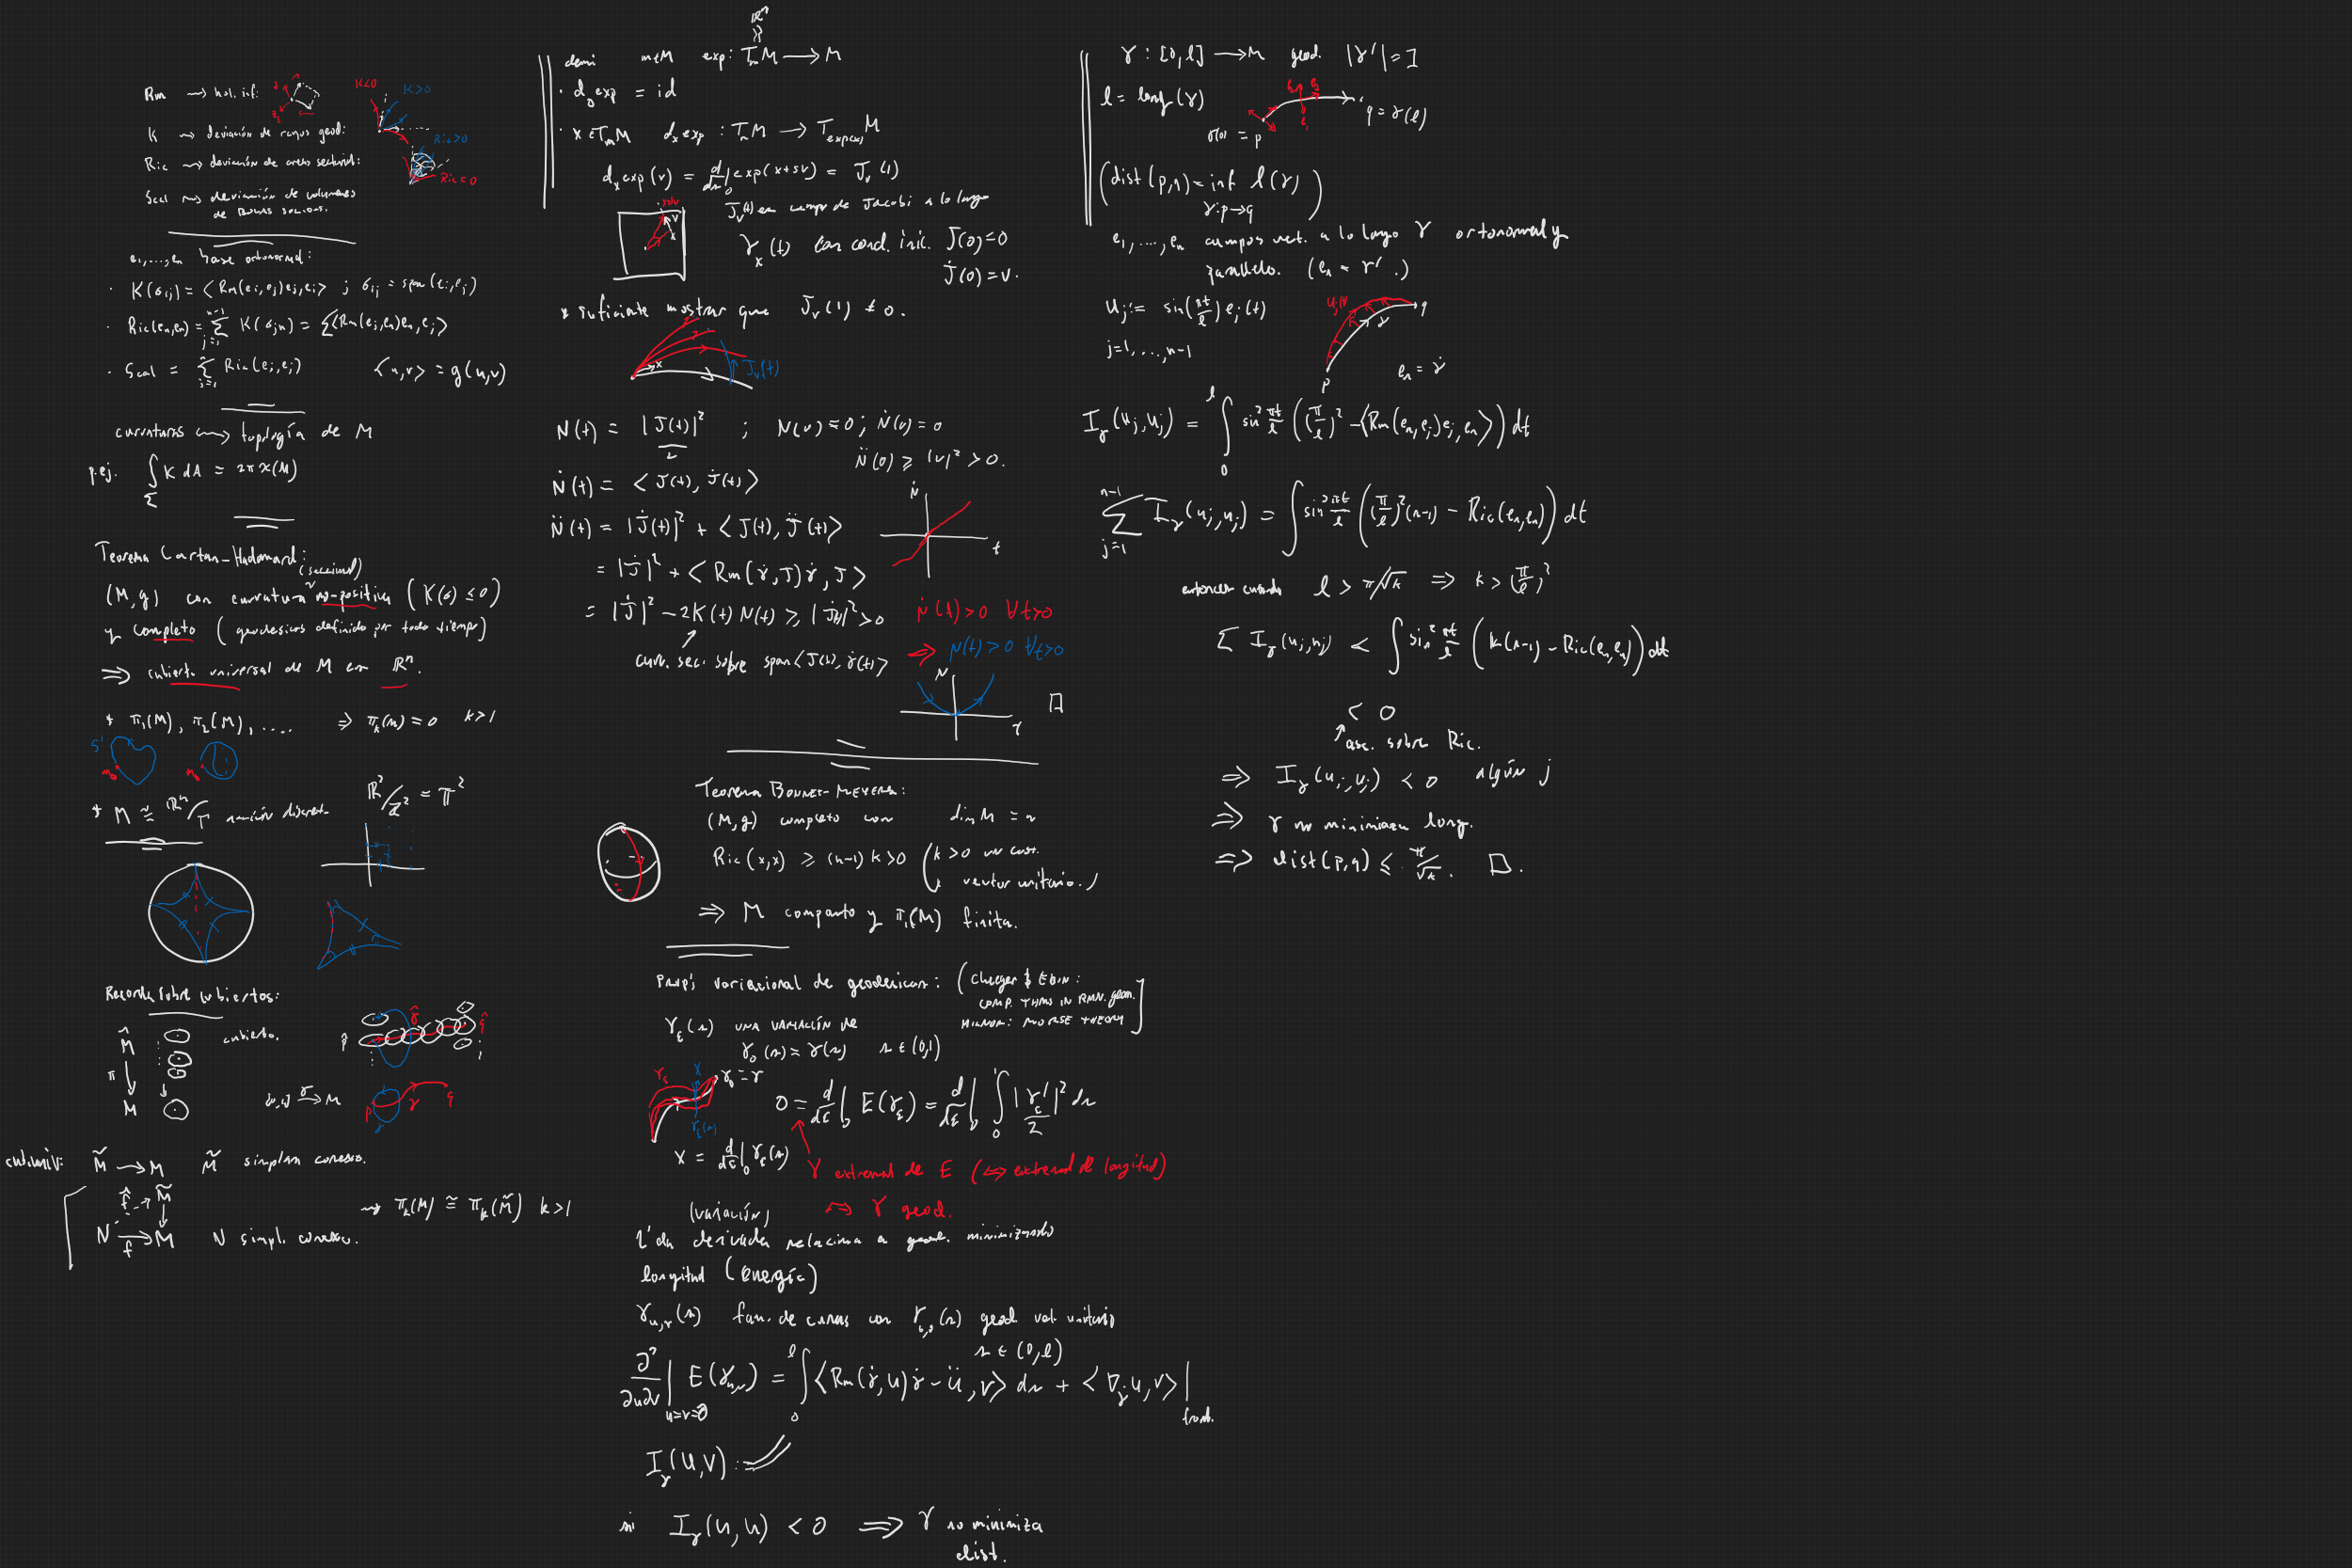 Rm ⇝ hol. inf:
K<0
K>0
K ⇝ deviación de rayos geod:
Ric>0
Ric ⇝ deviación de areas sectorial:
Ric<0
Scal ⇝ deviación de volumenes
de
e₁,...,eₙ base ortonormal:
· K(σᵢⱼ) = <Rm(eᵢ,eⱼ)eⱼ,eᵢ> ; σᵢⱼ = span(eᵢ,eⱼ)
· Ric(eₙ,eₙ) = Σ_{j=1}^{n-1} K(σⱼₙ) = Σ<Rm(eⱼ,eₙ)eₙ,eⱼ>
· Scal = Σ_{j=1}^{n} Ric(eⱼ,eⱼ) <u,v> = g(u,v)
curvaturas ⟿ topología de M
p.ej. ∫_Σ K dA = 2π χ(M)
Teorema Cartan-Hadamard:
(seccional)
(M,g) con curvatura no-positiva (K(σ) ≤ 0)
y completo (geodesicas definido por todo tiempo)
⇒ cubierto universal de M em ℝⁿ.
* π₁(M), π₂(M), .... ⇒ πₖ(M) = 0 k>1
S¹
m₀
m₀
ℝ²/ℤ² = 𝕋²
* M ≅ ℝⁿ/Γ acción discret.
Recorda sobre cubiertos:
M̂ cubierto.
π
M
p̂ γ̂ q̂
[0,1] →^σ M
p γ q
cub. univ: M̃ → M M̃ simplem conexo.
f̂ M̃
N →^f M N simpl. conexo.
⇝ πₖ(M) ≅ πₖ(M̃) k>1
ℝⁿ
dem: m∈M exp: TₘM → M
· d₀exp = id
· x∈TₘM dₓexp : TₘM → T_{exp(x)}M
dₓexp(v) = d/ds|₀ exp(x+sv) = Jᵥ(1)
Jᵥ(t) es campo de Jacobi a lo largo
x+sv
v
x
γₓ(t) con cond. inic. J(0)=0
J̇(0)=v.
* suficiente mostrar que Jᵥ(1) ≠ 0.
x
Jᵥ(t)
N(t) = |J(t)|²/2 ; N(0)=0 ; Ṅ(0)=0
N̈(0) ≥ |v|² > 0.
Ṅ(t) = <J(t), J̇(t)>
N̈(t) = |J̇(t)|² + <J(t), J̈(t)>
Ṅ
t
= |J̇|² + <Rm(γ̇,J)γ̇, J>
= |J̇|² - 2K(t) N(t) ≥ |J̇(t)|² > 0
Ṅ(t)>0 ∀t>0
⇒ N(t)>0 ∀t>0
curv. sec. sobre span<J(t), γ̇(t)>
N
□
Teorema Bonnet-Meyers:
(M,g) completo con dim M = n
Ric(x,x) ≥ (n-1)k > 0 (k>0 un cost.
x vector unitario.)
⇒ M compacto y π₁(M) finita.
Prop's variacional de geodesicas: (Cheeger & Ebin:
Comp. Thms in Rmn. geom.
Milnor: Morse Theory]
γ_ε(s) una variación de
γ₀(s) = γ(s) s∈(0,1)
γ_ε X γ₀=γ
γ_ε(s)
0 = d/dε|₀ E(γ_ε) = d/dε|₀ ∫₀¹ |γ_ε'|²/2 ds
X = d/dε|₀ γ_ε(s)
γ extremal de E (⟺ extremal de longitud)
⟺ γ geod.
(variación)
2'da derivada relaciona a geod. minimizando
longitud (energía)
γ_{u,v}(s) fam. de curvas con γ_{0,0}(s) geod vel unitario
s∈(0,l)
∂²/∂u∂v|_{u=v=0} E(γ_{u,v}) = ∫₀^l <Rm(γ̇,u)γ̇ - ü, v> ds + <∇_γ̇ u, v>|_{front.}
I_γ(U,V) :=
si I_γ(u,u) < 0 ⟹ γ no minimiza
dist.
γ : [0,l] → M geod. |γ'| = 1
l = long(γ)
γ(0) = p
q = γ(l)
(dist(p,q) = inf l(γ))
γ:p→q
e₁,...,eₙ campos vect. a lo largo γ ortonormal y
parallelo. (eₙ = γ'.)
uⱼ := sin(πt/l) eⱼ(t)
j=1,...,n-1
uⱼ(t)
γ
q
p
eₙ = γ̇
I_γ(uⱼ,uⱼ) = ∫₀^l sin² πt/l ((π/l)² - <Rm(eₙ,eⱼ)eⱼ,eₙ>) dt
Σ_{j=1}^{n-1} I_γ(uⱼ,uⱼ) = ∫ sin² πt/l ((π/l)²(n-1) - Ric(eₙ,eₙ)) dt
entonces cuando l > π/√k ⇒ k > (π/l)²
Σ I_γ(uⱼ,uⱼ) < ∫ sin² πt/l (k(n-1) - Ric(eₙ,eₙ)) dt
< 0
asc. sobre Ric.
⇒ I_γ(uⱼ,uⱼ) < 0 algún j
⇒ γ no minimiza long.
⇒ dist(p,q) ≤ π/√k. □.